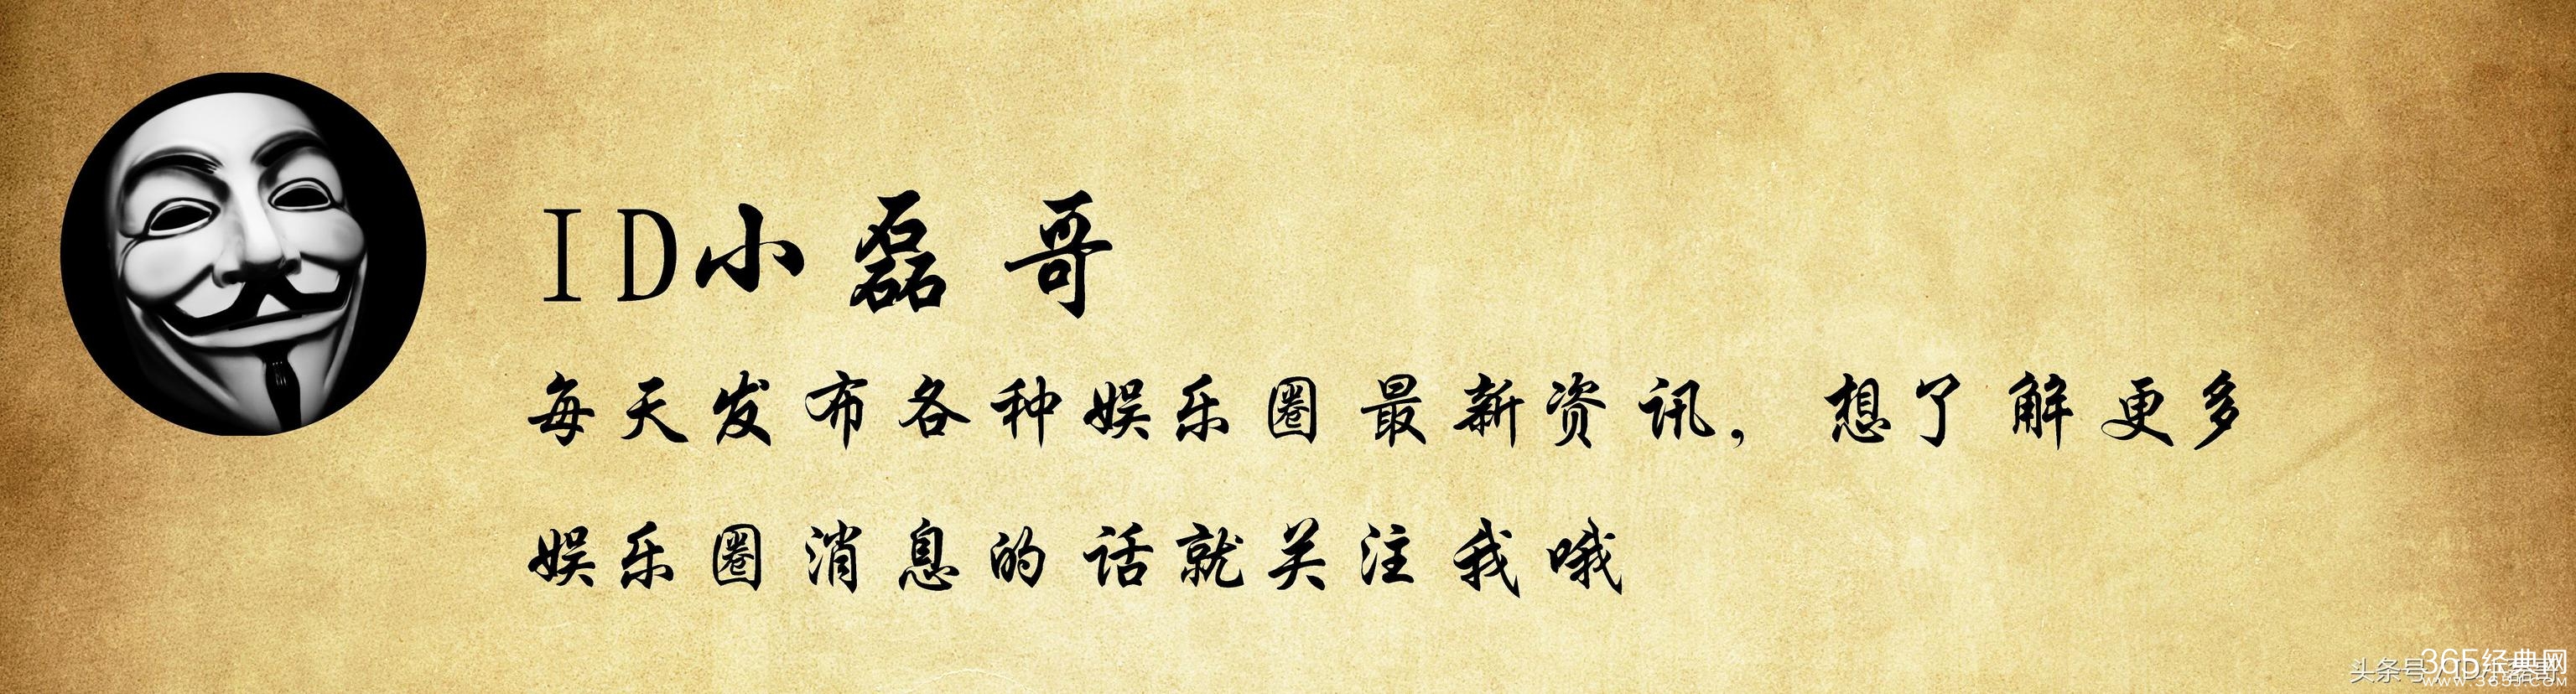 ID小磊哥
每天发布各种娱乐圈最新资讯，想了解更多
娱乐圈消息的话就关注我哦
365经典网
头条号/ID小磊哥